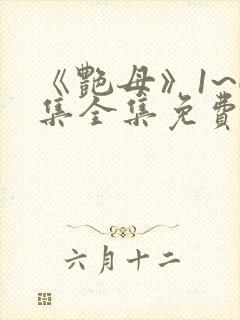 《艷母》1~
集全集免費
六月十二